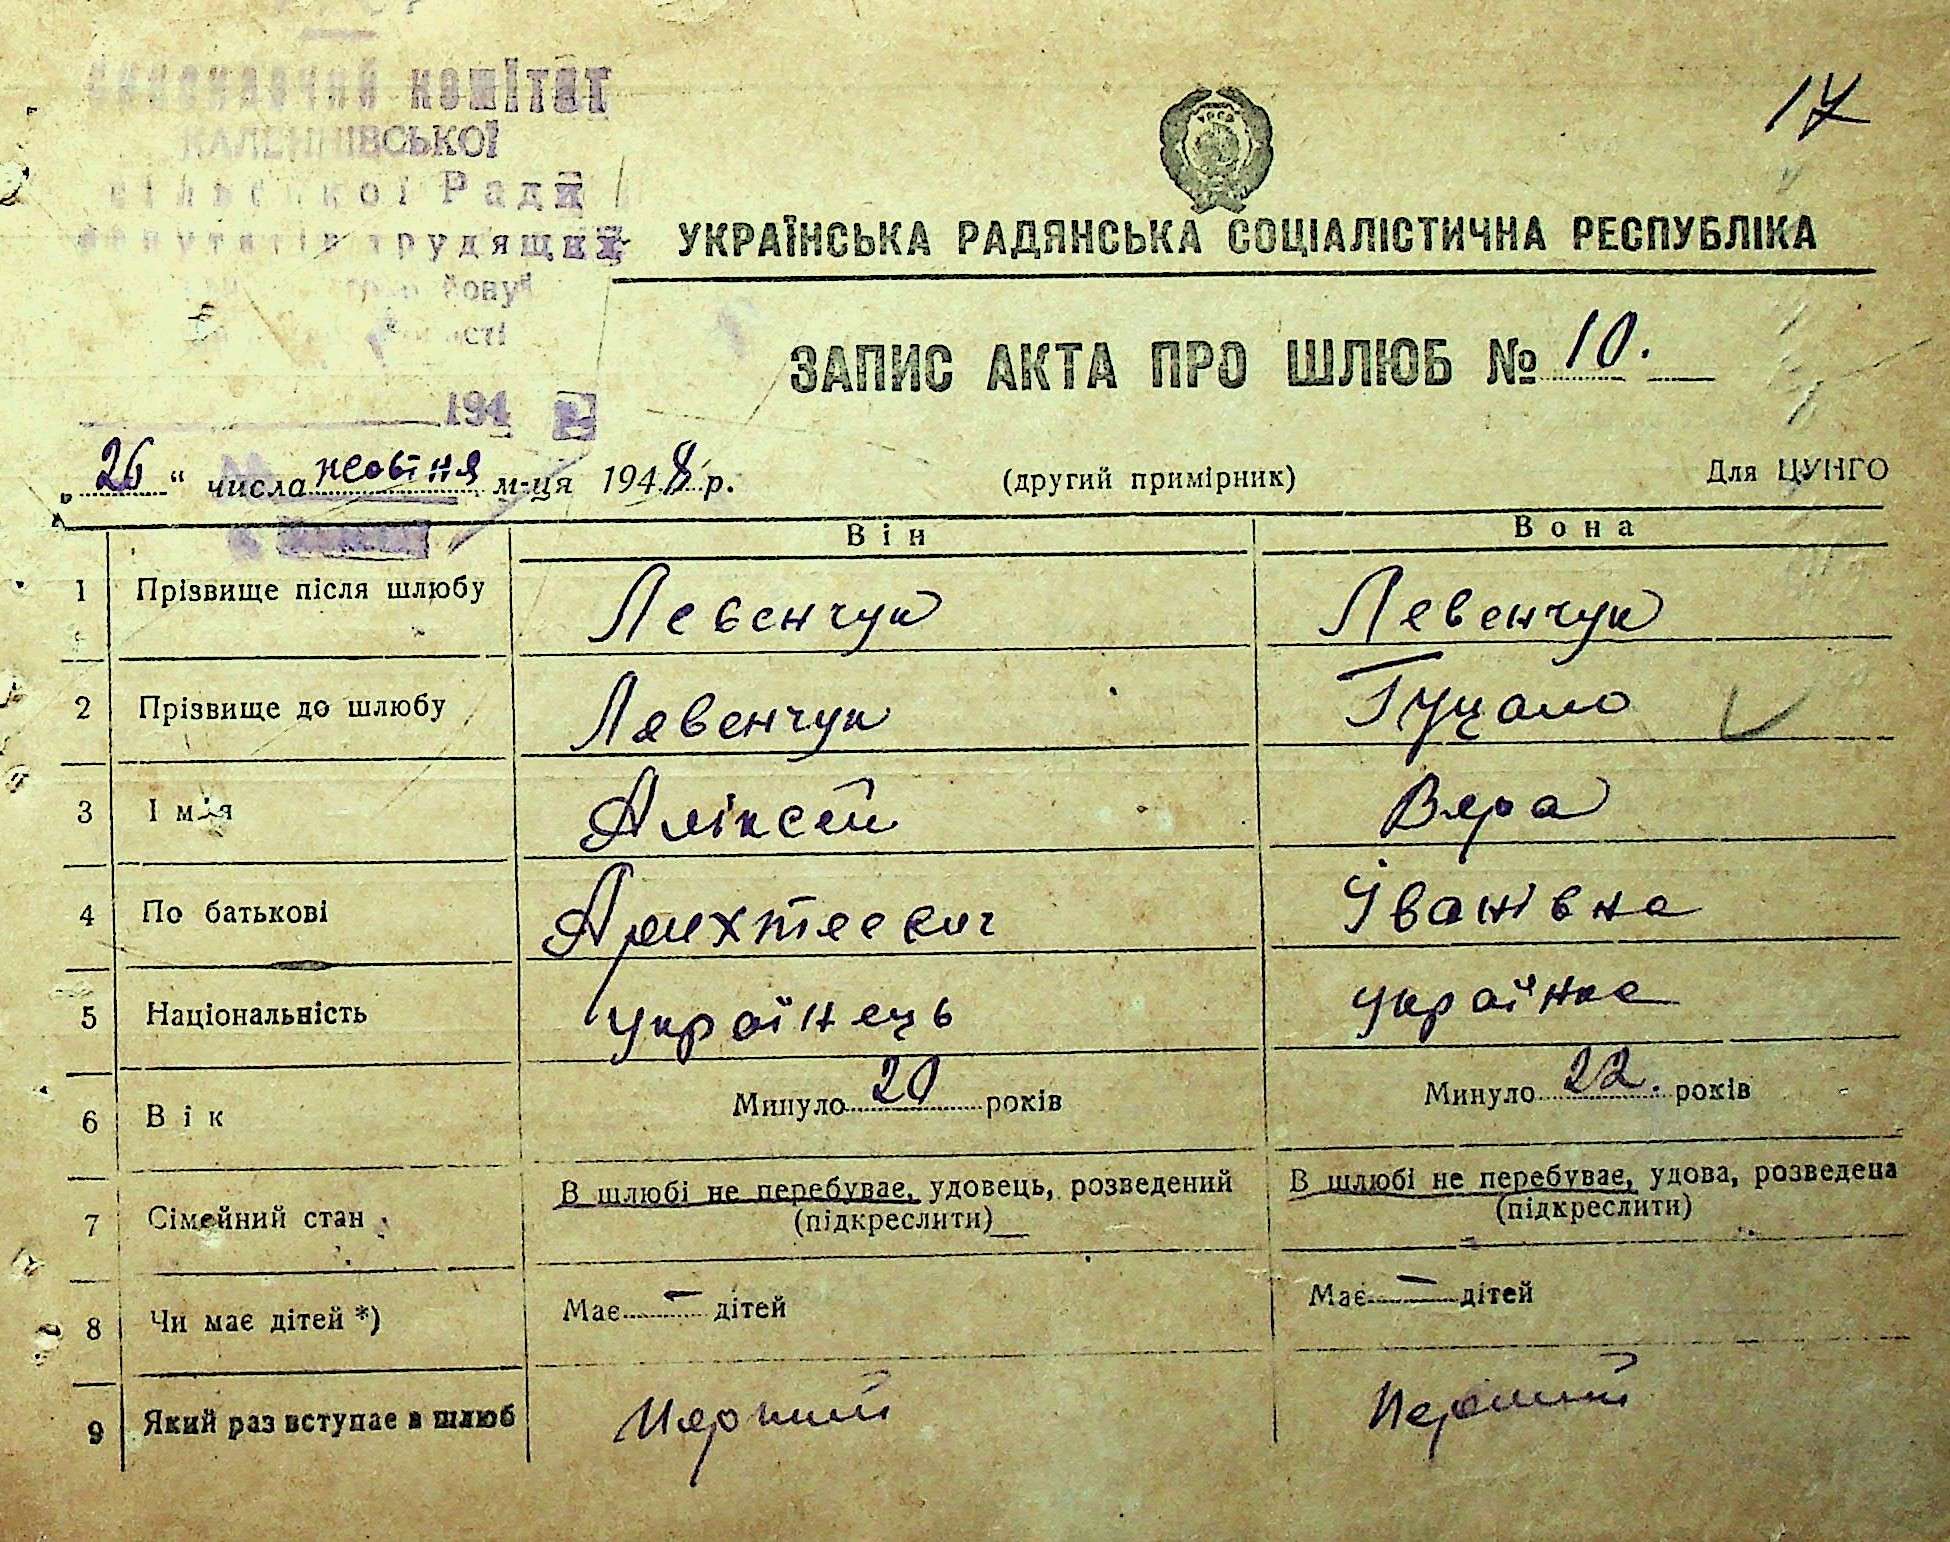 виконавчий комітет
КАЛЕНІВСЬКОЇ
сільської Ради
депутатів трудящих
17
УРСР
УКРАЇНСЬКА РАДЯНСЬКА СОЦІАЛІСТИЧНА РЕСПУБЛІКА
ЗАПИС АКТА ПРО ШЛЮБ № 10.
194
„26" числа жовтня м-ця 1948 р.
(другий примірник)
Для ЦУНГО
Він Вона
1 Прізвище після шлюбу Левенчук Левенчук
2 Прізвище до шлюбу Левенчук Гуцало
3 Ім'я Аліксей Вера
4 По батькові Іванівна
5 Національність українець українка
6 Вік Минуло 20 років Минуло 22. років
7 Сімейний стан В шлюбі не перебуває, удовець, розведений В шлюбі не перебуває, удова, розведена
(підкреслити) (підкреслити)
8 Чи має дітей *) Має — дітей Має — дітей
9 Який раз вступає в шлюб Перший Перший